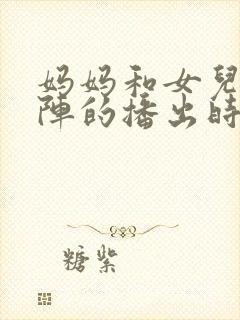 妈妈和女兒
陣的播出時
糖紫